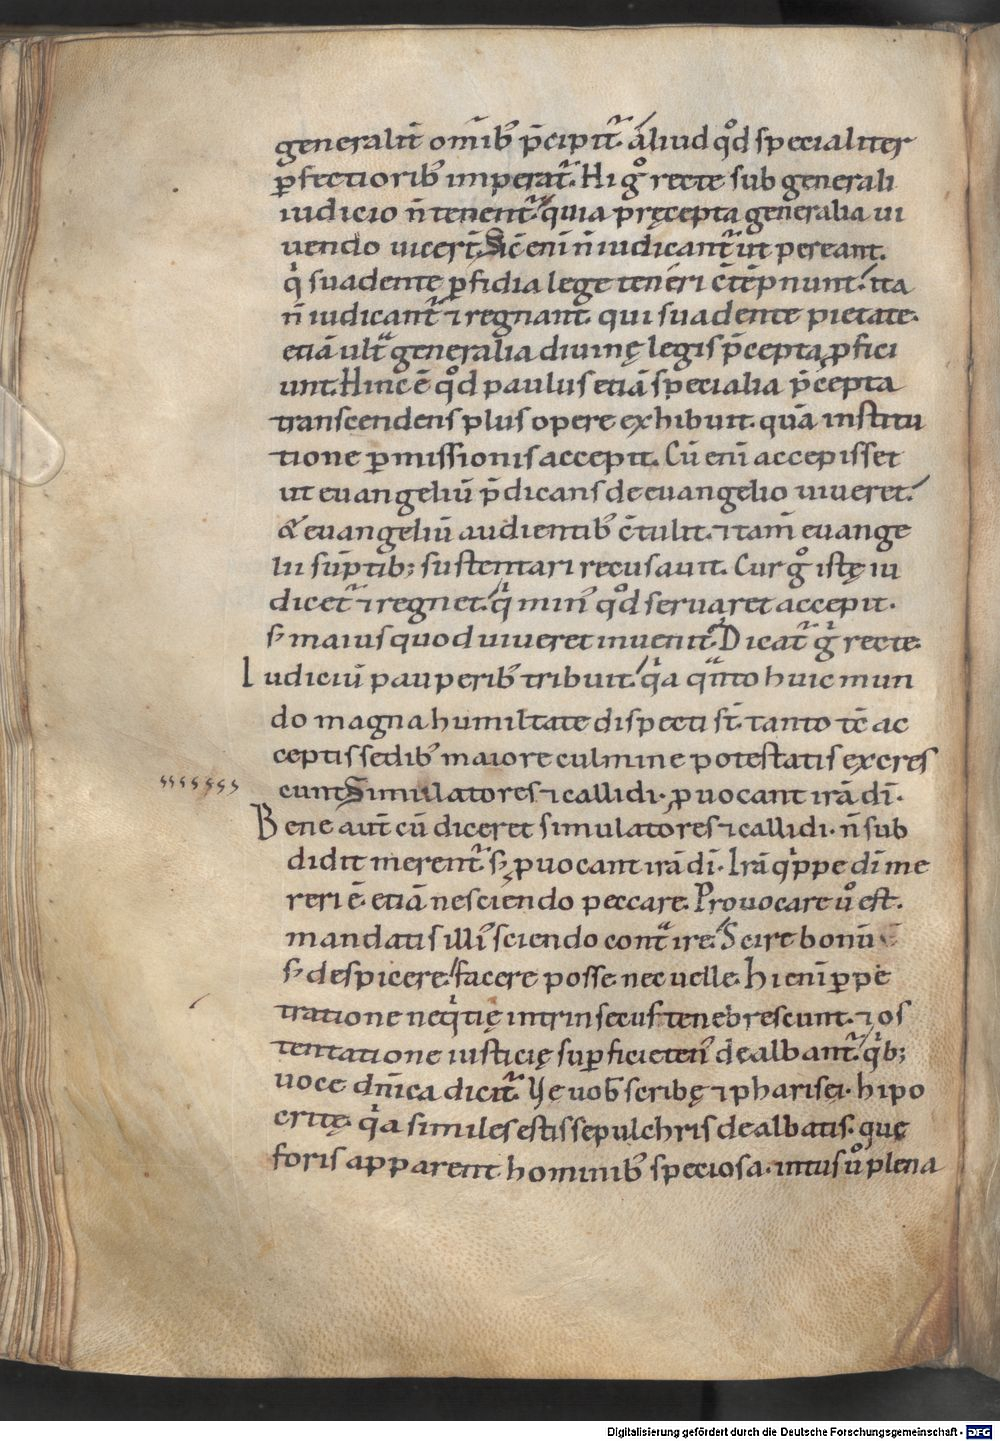 generalit̄ om̄ib' p̄cipit᷑. aliud qͦd specialiter
ꝑfectiorib' imperat᷑. Hi gͦ recte sub generali
iudicio n̄ tenent᷑. quia pręcepta generalia ui
uendo uicer̄. Sic̄ enī n̄ iudicant᷑ ut pereant.
qⁱ suadente ꝑfidia lege teneri c̄tēpnunt. ita
n̄ iudicant᷑ ⁊ regnant. qui suadente pietate.
etiā ultᵃ generalia diuinę legis p̄cepta ꝓfici
unt. Hinc ē qͦd paulus etiā specialia p̄cepta
transcendens plus opere exhibuit. quā institu
tione ꝑmissionis accepit. Cū enī accepisset
ut euangeliū p̄dicans de euangelio uiueret.
& euangeliū audientib' c̄tulit. ⁊ tam̄ euange
lii sūptib; sustentari recusauit. Cur gͦ istę iu
dicet᷑ ⁊ regnet. qⁱ min' qͦd seruaret accepit.
s; maius quod uiueret inuenit. Dicat᷑ gͦ recte.
Iudiciū pauperib' tribuit. qⁱa qᵃnto huic mun
do magna humilitate dispecti st̄. tanto tc̄ ac
ceptis sedib' maiore culmine potestatis excres
cunt. Simulatores ⁊ callidi. ꝓuocant irā dī.
Bene aut̄ cū diceret simulatores ⁊ callidi. n̄ sub
didit merent᷑ s; ꝓuocant irā dī. Irā qⁱppe dī me
reri ē. etiā nesciendo peccare. Prouocare uͦ est.
mandatis illi' sciendo contᵃire. Scire bonū
s; despicere. facere posse nec uelle. Hi enī ꝑpe
tratione neqⁱtię intrinsecus tenebrescunt. ⁊ os
tentatione iusticię suꝑficieten' dealbant᷑. qⁱb;
uoce dn̄ica dicit᷑. Ve uob̄ scribę ⁊ pharisęi. hipo
critę. qⁱa similes estis sepulchris dealbatis. quę
foris apparent hominib' speciosa. intus uͦ plena
Digitalisierung gefördert durch die Deutsche Forschungsgemeinschaft - DFG